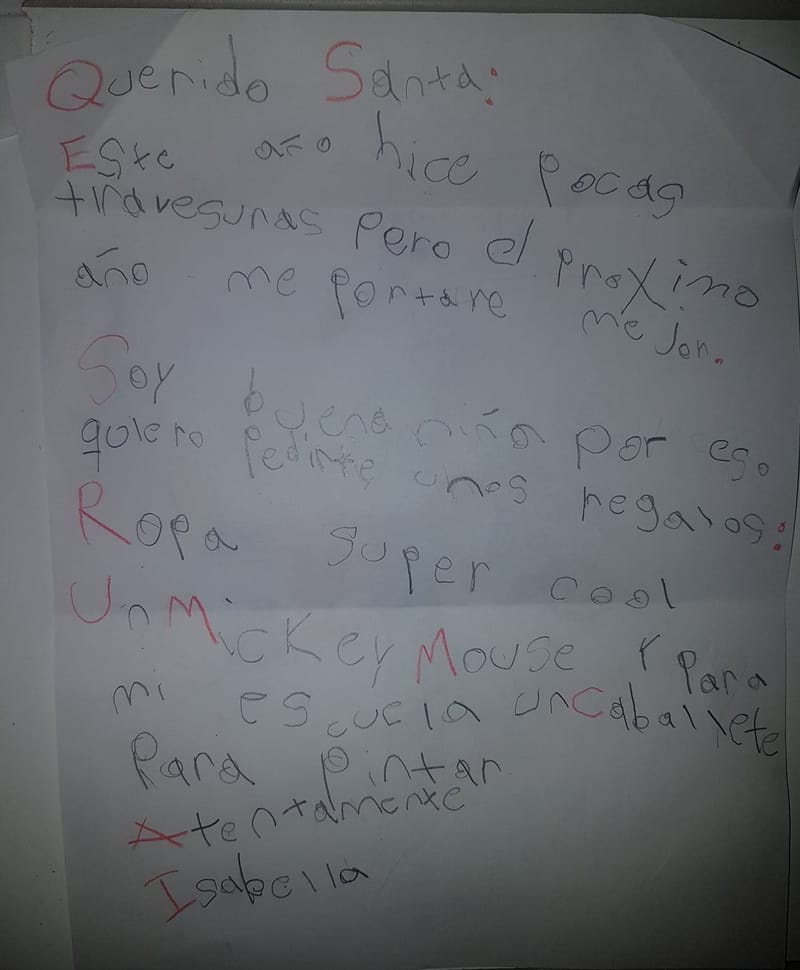 Querido Santa:
Este año hice pocas
travesuras pero el proximo
año me portare mejor.
Soy buena niña por eso
quiero pedirte unos regalos:
Ropa super cool
Un Mickey Mouse y para
mi escuela un Caballete
para pintar
Atentamente
Isabella